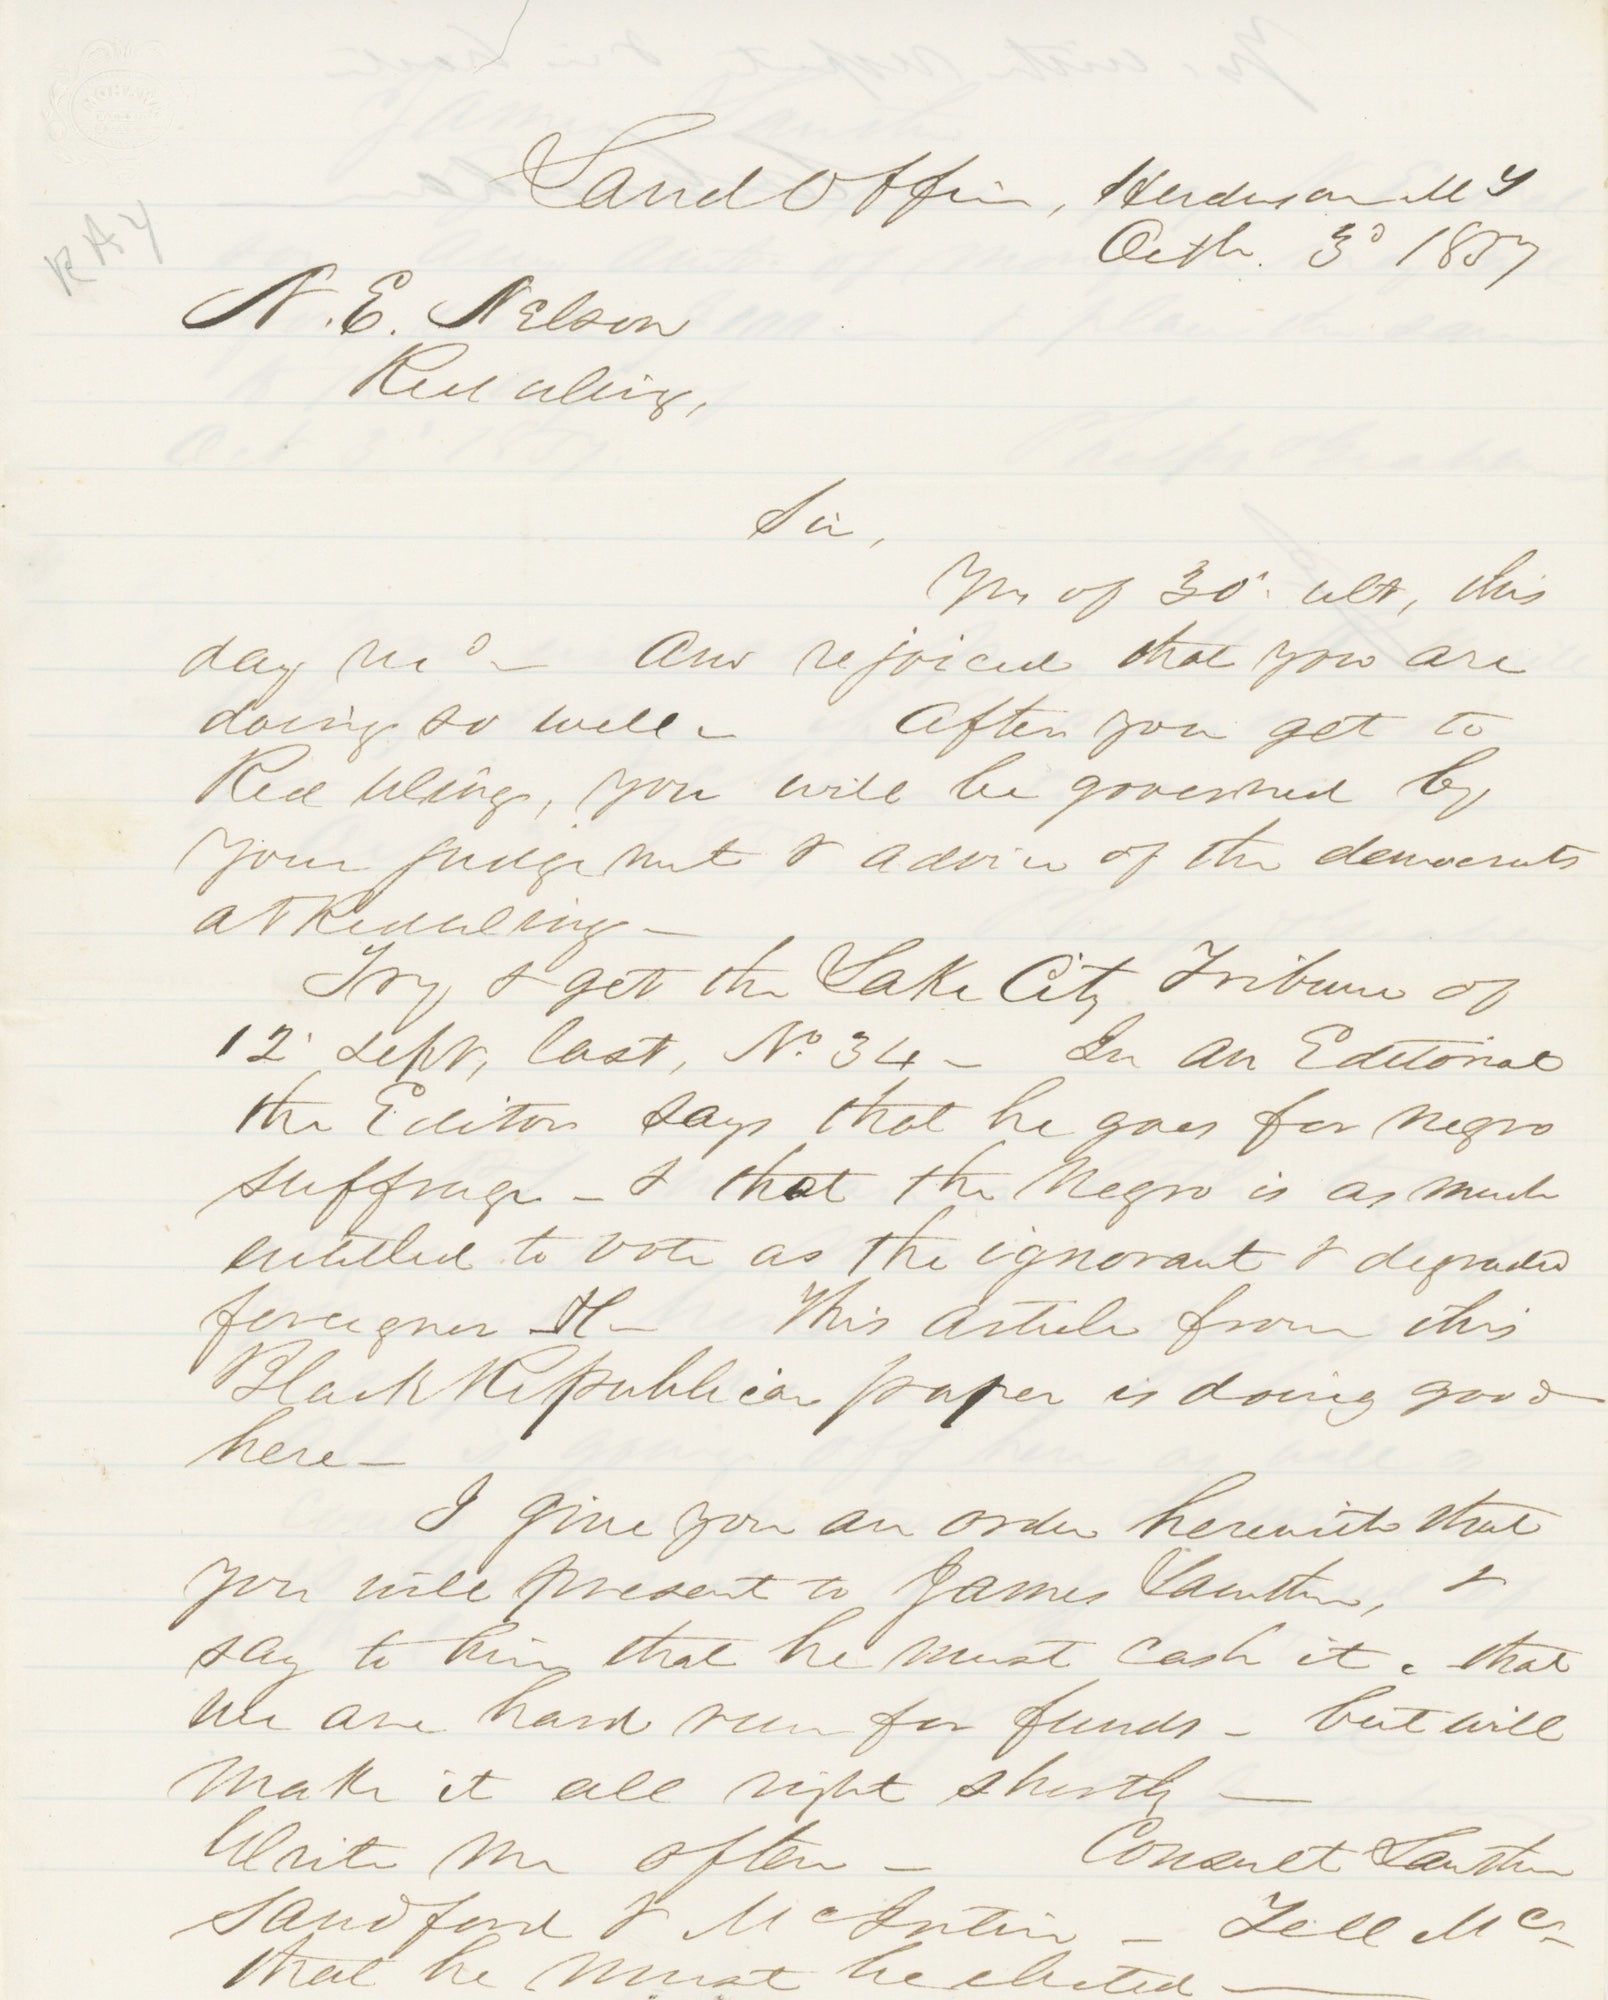 MOHAWK
Land Office, Henderson M T
Octb. 3d 1857
R A 4
N. E. Nelson
Red Wing,
Sir,
Yrs of 30' ult, this
day recd - Am rejoiced that you are
doing so well - After you get to
Red Wing, you will be governed by
your judgement & advice of the democrats
at Red Wing -
Try & get the Lake City Tribune of
12' Sept, last, No. 34 - In an Editorial
the Editor says that he goes for negro
suffrage - & that the Negro is as much
entitled to vote as the ignorant & degraded
foreigner - This article from this
Black Republican paper is doing good
here -
I give you an order herewith that
you will present to James Lawther, &
say to him that he must cash it. that
we are hard run for funds - but will
make it all right shortly -
Write me often - Consult Lawther
Sandford & McIntire - Tell Mc -
that he must be elected -